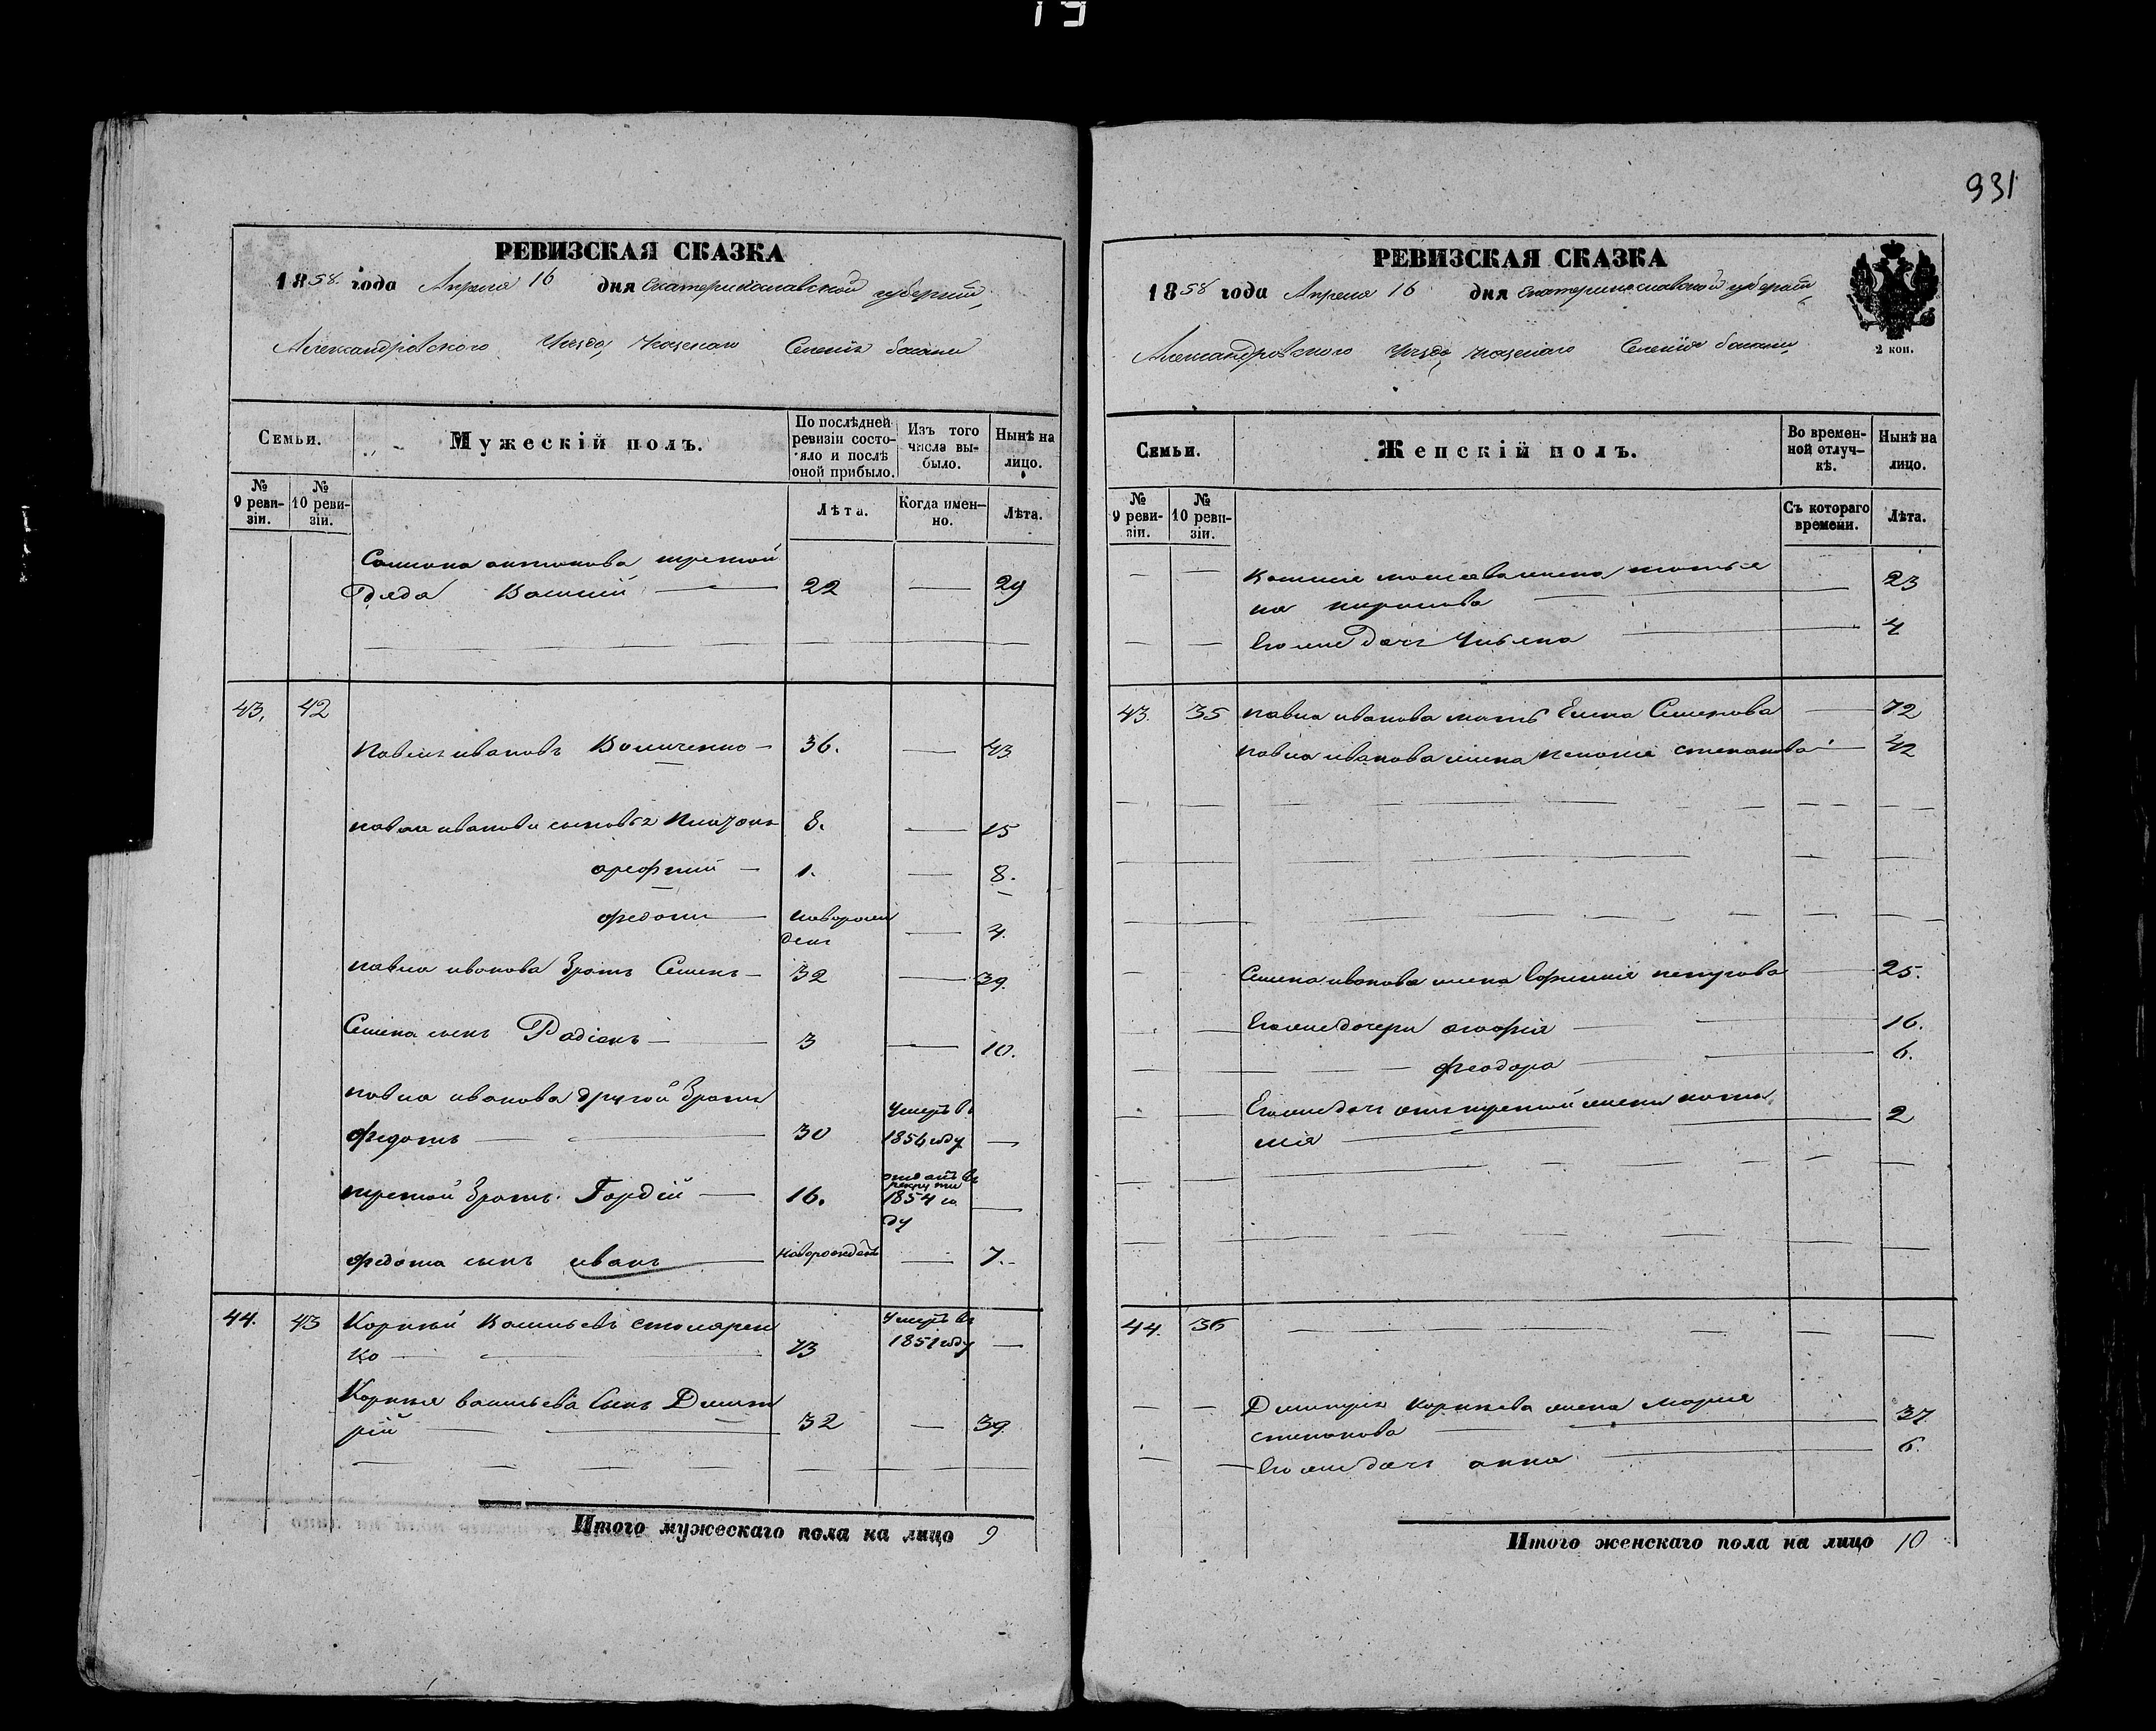 931
РЕВИЗСКАЯ СКАЗКА
1858 года Апреля 16 дня Екатеринославской губернии
Александровского Уезда Казенаго Селения басани
Семьи.
Мужескій полъ.
По послѣдней ревизіи состояло и послѣ оной прибыло.
Изъ того числа выбыло.
Нынѣ на лицо.
№ 9 ревизіи.
№ 10 ревизіи.
Лѣта.
Когда именно.
Лѣта.
антонова третой
дяда 22 — 29
43. 42
Павелъ ивановъ — 36. — 43
павла иванова сыновья 8. — 15
арефтий — 1. — 8.
федоть — новорожден — 4.
павла иванова братъ Семенъ — 32 — 39.
Семена сынъ Радіонъ — 3 — 10.
павла иванова другой братъ
федотъ — 30 умеръ въ 1856 году —
третой братъ Гордій — 16. отданъ въ рекруты 1854 году —
федота сынъ иванъ — новорожденъ — 7.
44. 43 Корней Васильевъ столярен
ко — 73 умеръ въ 1851 году —
Корнея васильева сынъ Димит
рій — 32 — 39
Итого мужескаго пола на лицо 9
РЕВИЗСКАЯ СКАЗКА
1858 года Апреля 16 дня Екатеринославской губернии
Александровского Уезда Казенаго Селения басани
2 коп.
Семьи.
Женскій полъ.
Во временной отлучкѣ.
Нынѣ на лицо.
№ 9 ревизіи.
№ 10 ревизіи.
Съ котораго времени.
Лѣта.
жена татья
на — 23
Его же дочь Ульяна — 4
43. 35 павла иванова мать Елена Семенова — 72
павла иванова жена пелагия степанова — 42
Семена иванова жена Ефимия петрова — 25.
Его же дочери агафия — 16.
феодора — 6.
Его же дочь от третой жены
— 2
44. 36
Димитрія Корнеева жена Мария
степанова — 37
Его же дочь анна — 6.
Итого женскаго пола на лицо 10